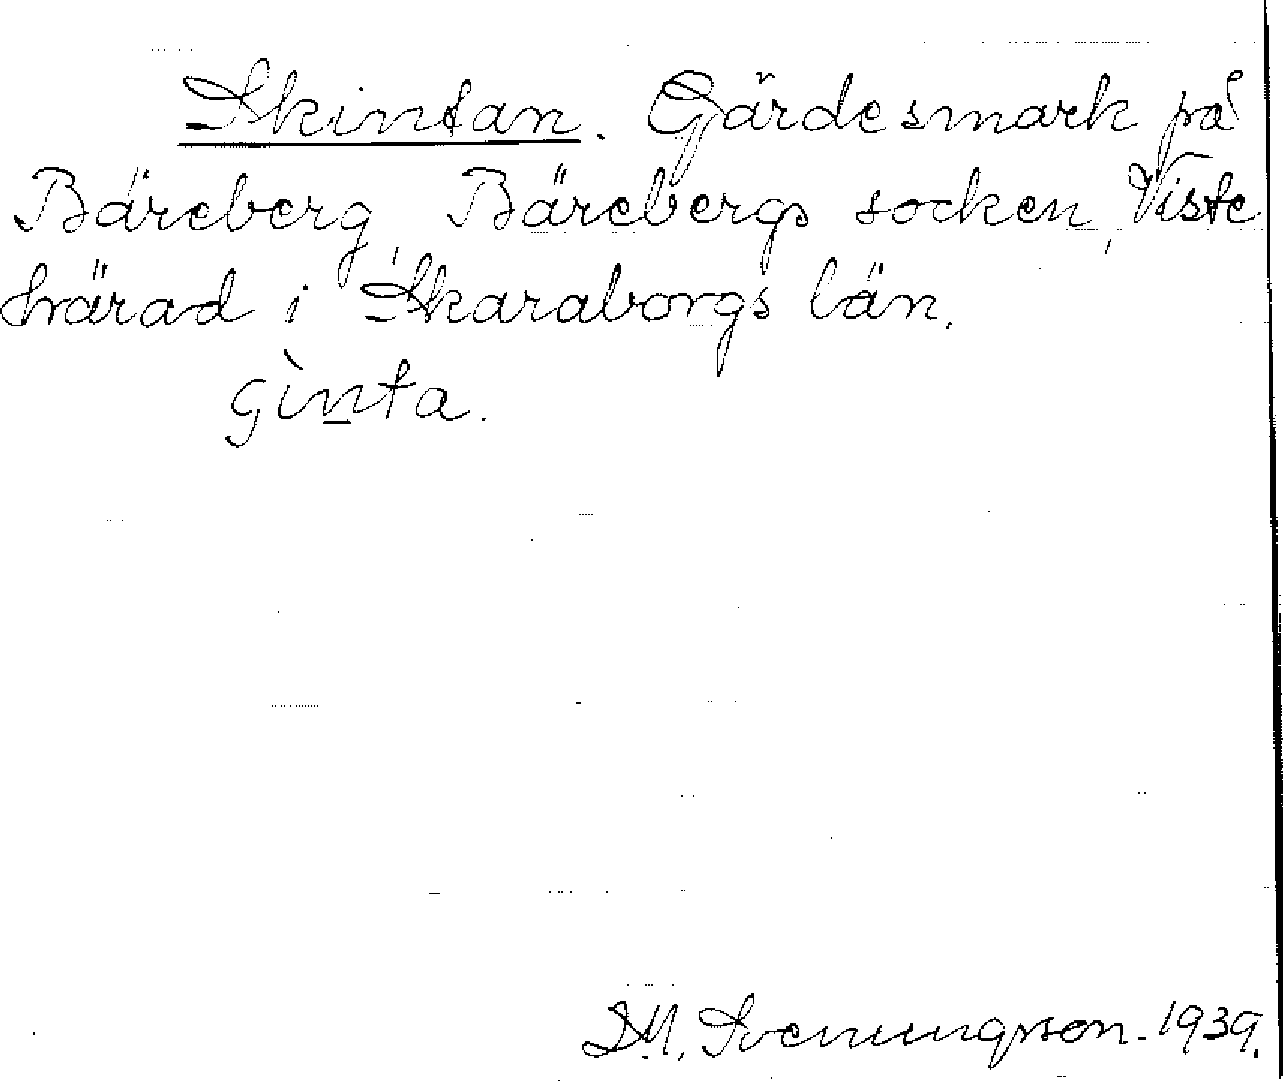 Skintan. Gärdesmark på
Bäreberg, Bärebergs socken, Viste
härad i Skaraborgs län.
gìnta.
S.M. Svenungson. 1939.